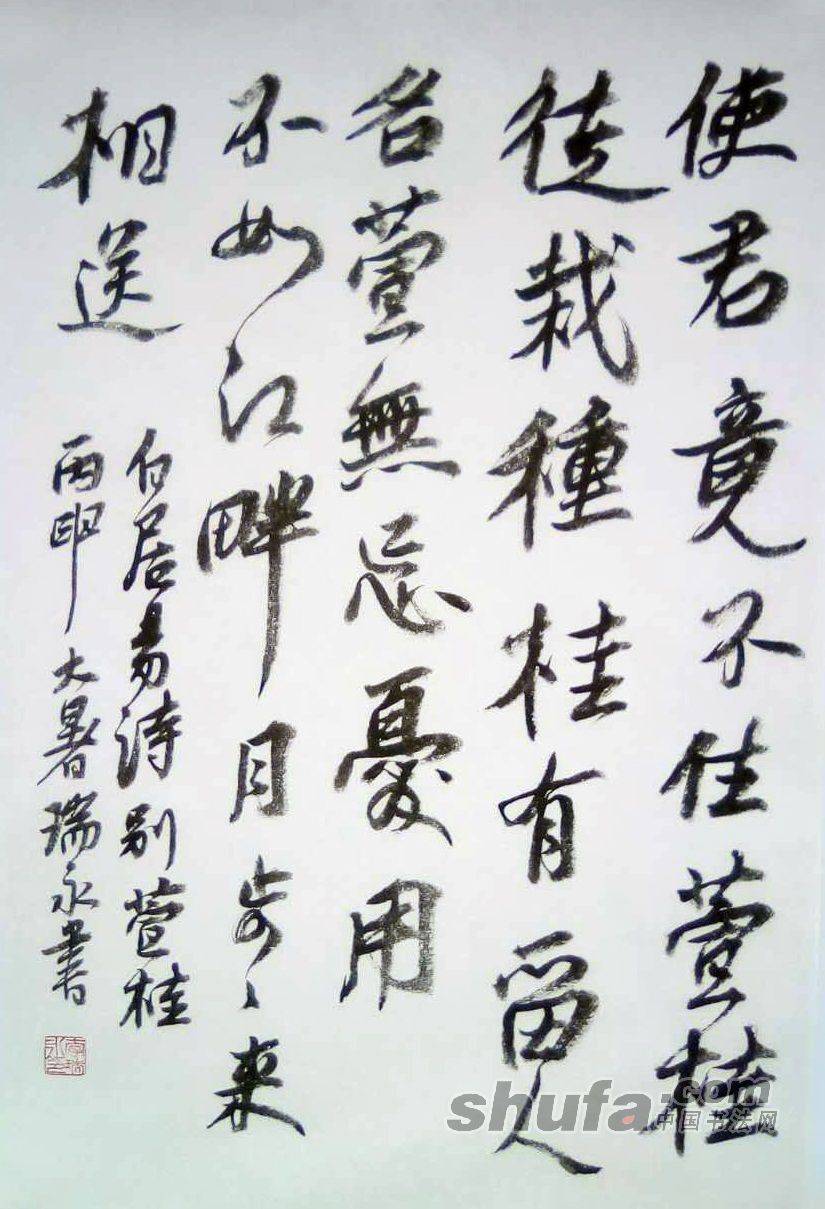 使君竟不住萱桂
徒栽種桂有留人
名萱無忘憂用
不如江畔月步々来
相送
白居易诗别萱桂
丙申大暑瑞永書
shufa.com
中国书法网